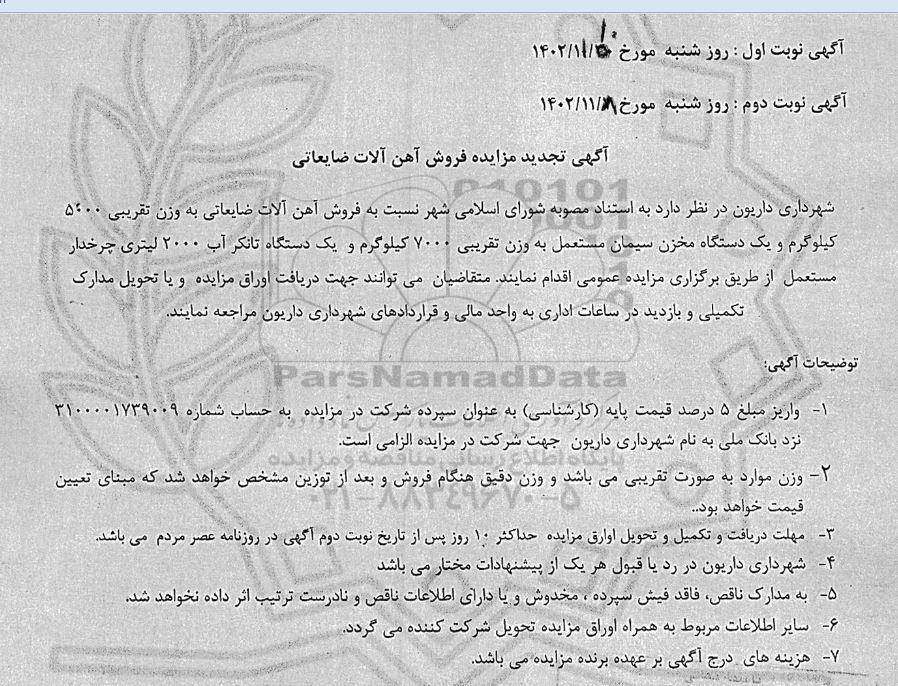 آگهی نوبت اول : روز شنبه مورخ ۱۴۰۲/۱۱/
آگهی نوبت دوم : روز شنبه مورخ ۱۴۰۲/۱۱/
آگهی تجدید مزایده فروش آهن آلات ضایعاتی
شهرداری داریون در نظر دارد به استناد مصوبه شورای اسلامی شهر نسبت به فروش آهن آلات ضایعاتی به وزن تقریبی ۵۰۰۰
کیلوگرم و یک دستگاه مخزن سیمان مستعمل به وزن تقریبی ۷۰۰۰ کیلوگرم و یک دستگاه تانکر آب ۲۰۰۰ لیتری چرخدار
مستعمل از طریق برگزاری مزایده عمومی اقدام نمایند. متقاضیان می توانند جهت دریافت اوراق مزایده و یا تحویل مدارک
تکمیلی و بازدید در ساعات اداری به واحد مالی و قراردادهای شهرداری داریون مراجعه نمایند.
توضیحات آگهی:
۱- واریز مبلغ ۵ درصد قیمت پایه (کارشناسی) به عنوان سپرده شرکت در مزایده به حساب شماره ۳۱۰۰۰۰۱۷۳۹۰۰۹
نزد بانک ملی به نام شهرداری داریون جهت شرکت در مزایده الزامی است.
۲- وزن موارد به صورت تقریبی می باشد و وزن دقیق هنگام فروش و بعد از توزین مشخص خواهد شد که مبنای تعیین
قیمت خواهد بود..
۳- مهلت دریافت و تکمیل و تحویل اوارق مزایده حداکثر ۱۰ روز پس از تاریخ نوبت دوم آگهی در روزنامه عصر مردم می باشد.
۴- شهرداری داریون در رد یا قبول هر یک از پیشنهادات مختار می باشد
۵- به مدارک ناقص، فاقد فیش سپرده ، مخدوش و یا دارای اطلاعات ناقص و نادرست ترتیب اثر داده نخواهد شد.
۶- سایر اطلاعات مربوط به همراه اوراق مزایده تحویل شرکت کننده می گردد.
۷- هزینه های درج آگهی بر عهده برنده مزایده می باشد.
ParsNamadData
پایگاه اطلاع رسانی مناقصه و مزایده
۰۲۱-۸۸۳۴۹۶۷۰-۵